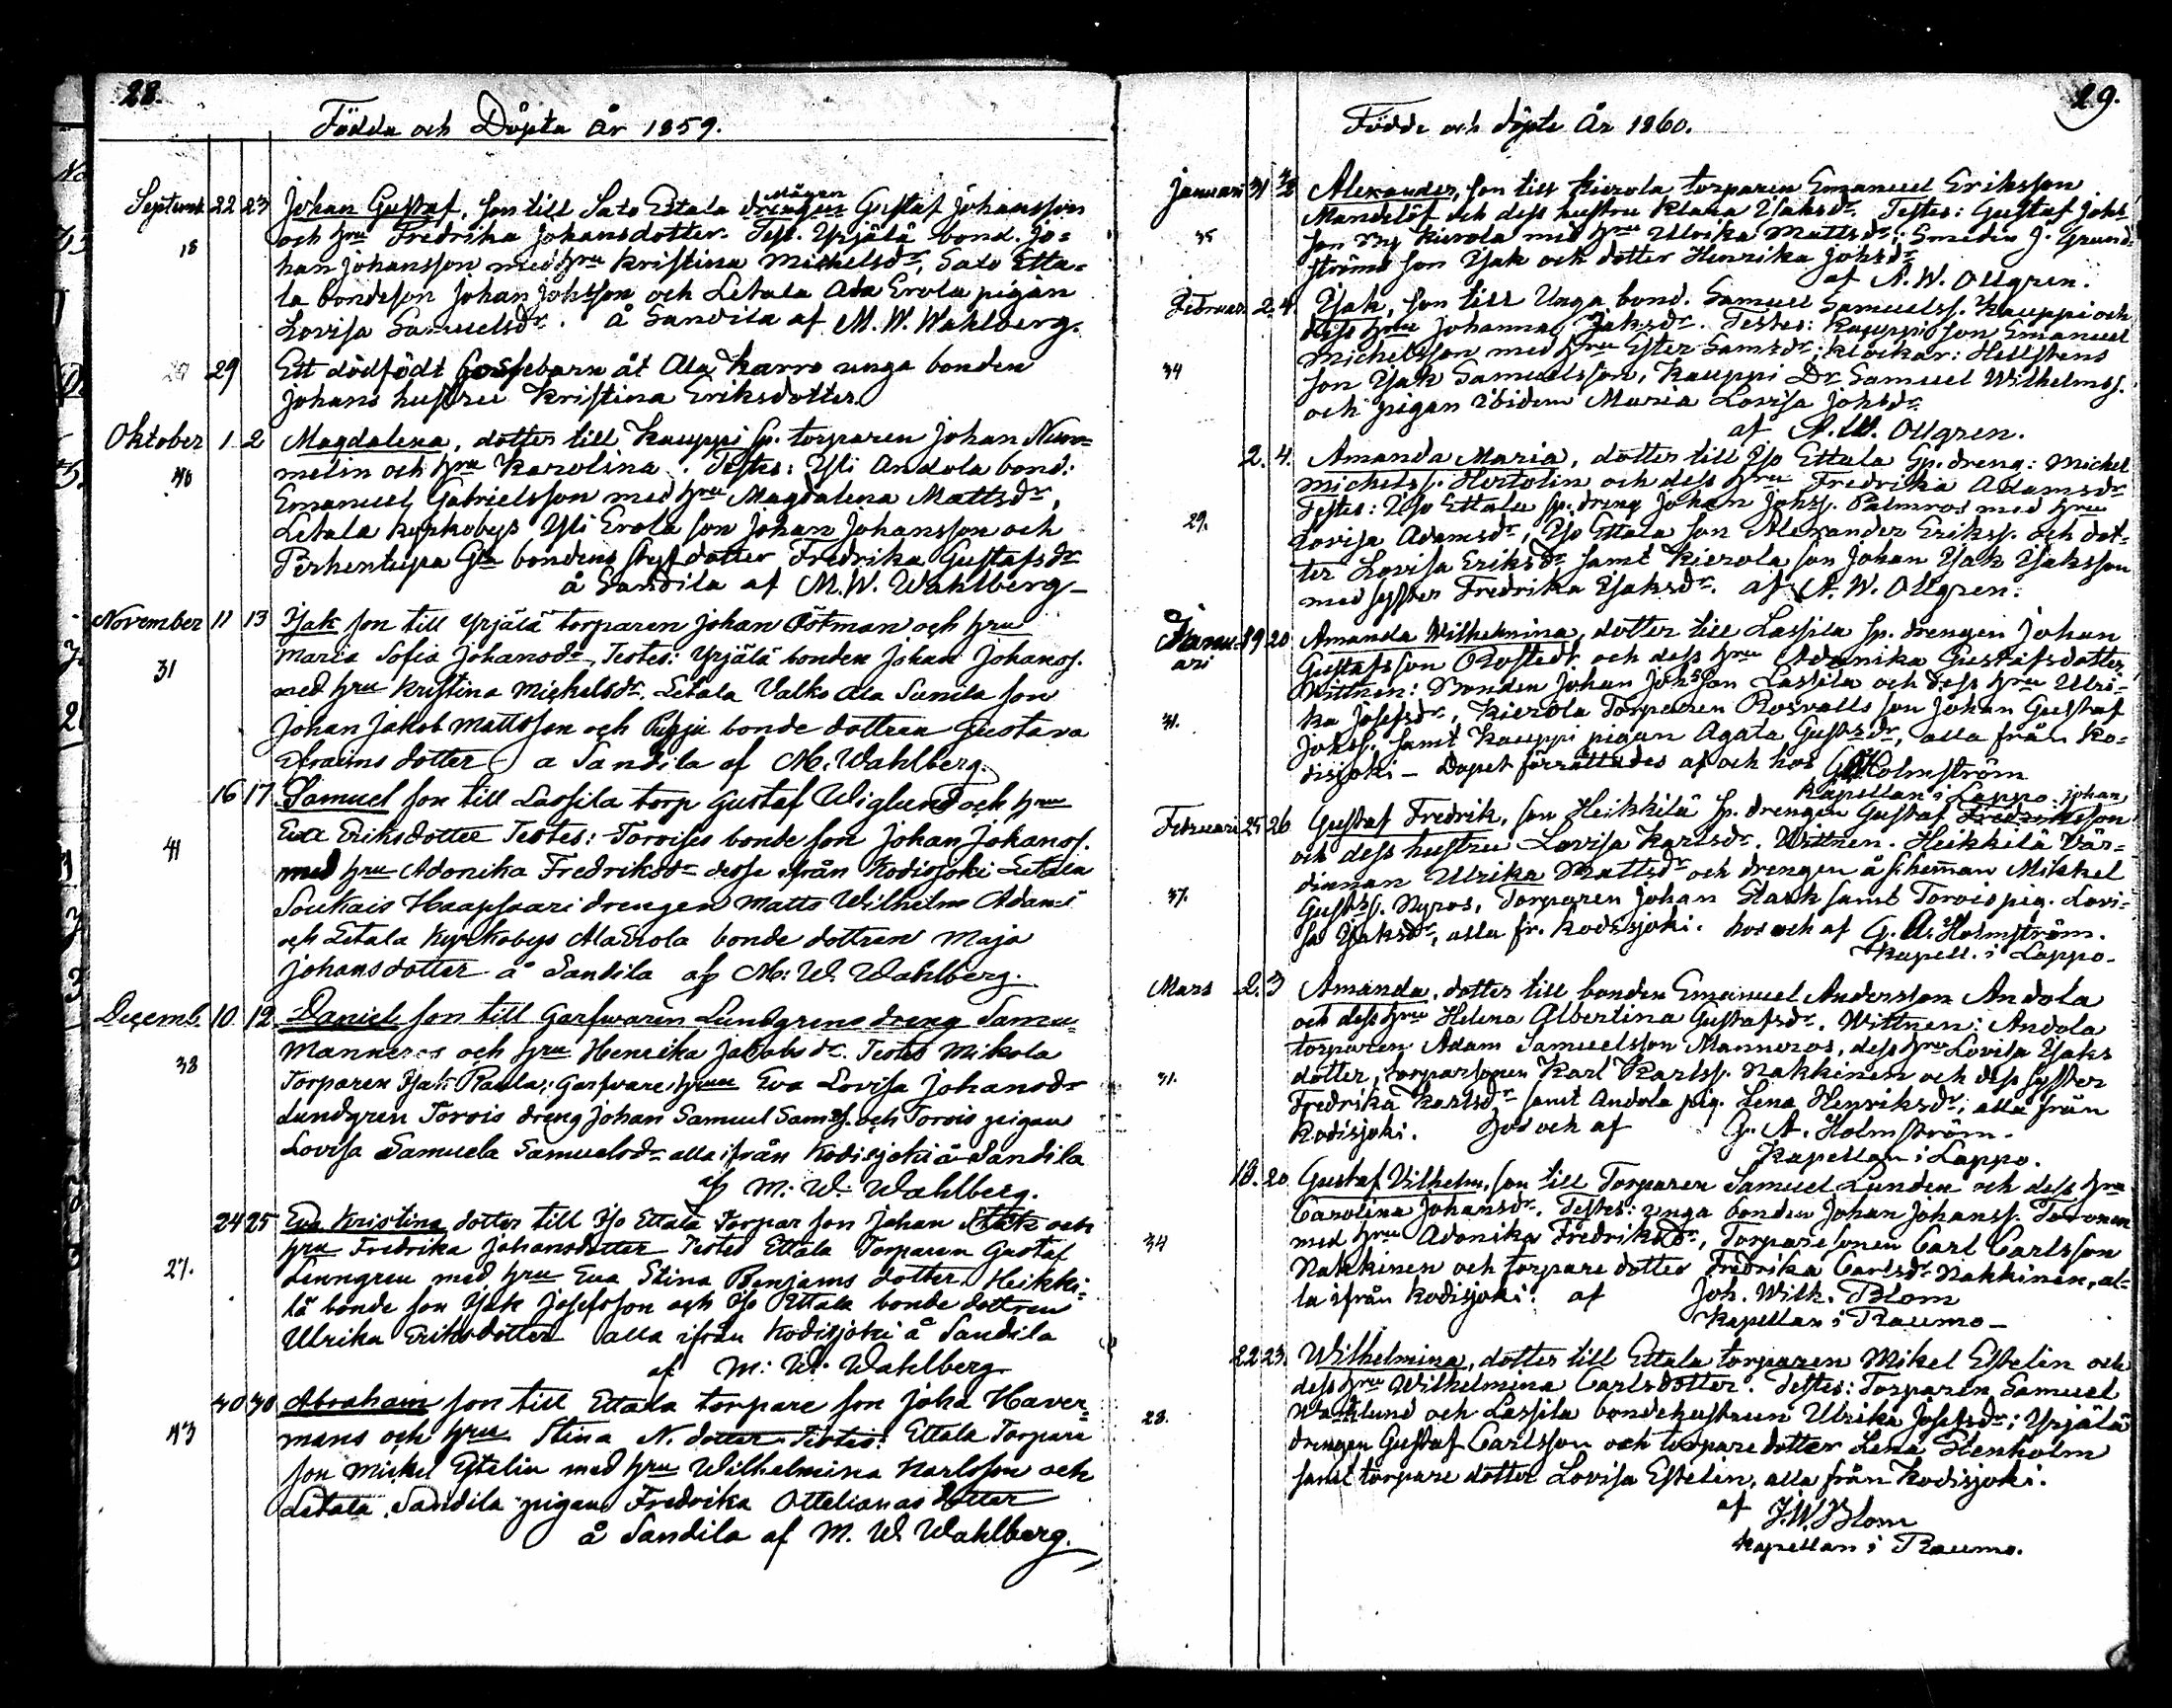 28.
Födda och Döpta År 1859.
Septemb. 22 23 Johan Gustaf, son till Sato Ettala drengen mågen Gustaf Johansson
och hru Fredrika Johansdotter. Test. Yrjälä bond. Jo=
18 han Johansson med hru Kristina Michelsdr, Sato Etta=
la bondeson Johan Johsson och Letala Ala Erola pigan
Lovisa Samuelsdr. å Sandila af M. W. Wahlberg.
29 Ett dödfödt Gossebarn åt Ala Karro unga bonden
Johans hustru Kristina Eriksdotter
Oktober 1 2 Magdalena, dotter till Kauppi sp. torparen Johan Num=
melin och hru Karolina. Testes: Yli Andola bond:
40 Emanuel Gabrielsson med hru Magdalena Mattsdr,
Letala kyrkobys Yli Erola son Johan Johansson och
Pirhentupa Gla bondens styfdotter Fredrika Gustafsdr
å Sandila af M. W. Wahlberg
November 11 13 Isak son till Yrjälä torparen Johan Rötman och hru
Maria Sofia Johansdr, Testes: Yrjälä bonden Johan Johanss.
31 med hru Kristina Michelsdr. Letala Valko Ala Sunila son
Johan Jakob Mattsson och bonde dottren Gustava
Efraims dotter å Sandila af M. Wahlberg.
16 17 Samuel son till Lassila torp Gustaf Wiglund och hru
Eva Eriksdotter Testes: Torvises bonde son Johan Johanss.
41 med hru Adonika Fredriksdr desse ifrån Kodisjoki Letala
Soukais Haapsaari drengen Matts Wilhelm Adams
och Letala Kyrkobys Ala Erola bonde dottren Maja
Johansdotter å Sandila af M: W. Wahlberg.
Decemb. 10 12 Daniel son till Garfvaren Lundgrens dreng Samu.
Manneros och hru Henrika Jakobsdr. Testes Mikola
38 Torparen Isak Paula; Garfvare hrun Eva Lovisa Johansdr
Lundgren Torvis dreng Johan Samuel Samss. och Torvis pigan
Lovisa Samuela Samuelsdr alla ifrån Kodisjoki å Sandila
af M: W: Wahlberg.
24 25 Eva Kristina dotter till Iso Ettala Torpar son Johan Stark och
hru Fredrika Johansdotter Testes Ettala Torparen Gustaf
27. Lenngren med hru Eva Stina Benjams dotter. Heikki=
lä bonde son Isak Josefsson och Iso Ettala bonde dottren
Ulrika Eriksdotter alla ifrån Kodisjoki å Sandila
af M: W: Wahlberg
30 30 Abraham son till Ettala torpare son Joha Haver=
mans och hru Stina N. dotter Testes: Ettala Torpare
43 son Mickel Estelin med hru Wilhelmina Karlsson och
Letala. Sandila pigan Fredrika Ottelianas dotter
å Sandila af M. W. Wahlberg.
29.
Födde och döpte År 1860.
Januari 31 Alexander, son till Kierola torparen Emanuel Eriksson
Mandelöf och dess hustru Klara Isaksdr. Testes: Gustaf Johs
35 son Kierola med hru Ulrika Mattsdr; Smeden J. Grund=
ströms son Isak och dotter Henrika Johsdr
af A. W. Ollgren.
Februari 2. 4. Isak, son till Unga bond. Samuel Samuelss. Kauppi och
dess hru Johanna Isaksdr. Testes: Kauppi son Emanuel
Michelsson med hru Ester Samsdr; klockar: Hellstens
34 son Isak Samuelsson, Kauppi Dr. Samuel Wilhelmss.
och pigan ibidem Maria Lovisa Johsdr
af A. W. Ollgren.
2. 4. Amanda Maria, dotter till Iso Ettala Sp. dreng: Michel
Michelss. Hertolin och dess hru Fredrika Adamsdr
Testes: Iso Ettala sp. dreng Johan Johss. Palmros med hru
29. Lovisa Adamsdr, Iso Ettala son Alexander Erikss. och dot=
ter Lovisa Eriksdr, samt Kierola son Johan Isak Isaksson
med syster Fredrika Isaksdr. af A. W. Ollgren.
Janu=
ari 19 20 Amanda Wilhelmina, dotter till Lassila sp. drengen Johan
Gustafsson Rostedt och dess hru Adonika Gustafsdotter
Wittnen: Bonden Johan Johsson Lassila och dess hru Ulri=
31. ka Josefsdr, Kierola Torparen Rosvalls son Johan Gustaf
Johss. samt Kauppi pigan Agata Gustsdr, alla från Ko=
disjoki – Dopet förrättades af och hos G. A. Holmström
Kapellan i Lappo.
Februari 25 26 Gustaf Fredrik, son Heikkilä sp. drengen Gustaf Fredriksson Johan
och dess hustru Lovisa Karlsdr. Wittnen. Heikkilä Vär=
dinnan Ulrika Mattsdr och drengen å Mikkel
37. Gustss. Nyros, Torparen Johan Stark samt Torvis pig. Lovi=
sa Isaksdr, alla fr. Kodisjoki. hos och af G. A. Holmström.
Kapell. i Lappo.
Mars 2. 3 Amanda, dotter till bonden Emanuel Andersson Andola
och dess hru Helena Albertina Gustafsdr. Wittnen: Andola
torparen Adam Samuelsson Manneros, dess hru Lovisa Isaks
31. dotter, torparsonen Karl Karlss. Nakkinen och dess syster
Fredrika Karlsdr samt Andola pig. Lena Henriksdr; alla från
Kodisjoki. Hos och af G. A. Holmström.
Kapellan i Lappo.
18. 20 Gustaf Vilhelm, son till Torparen Samuel Lunden och dess hru
Carolina Johansdr. Testes: unga bonden Johan Johanss. Toronen
34 med hru Adonika Fredriksdr, Torpare sonen Carl Carlsson
Nakkinen och torpare dotter Fredrika Carlsdr Nakkinen, al=
la ifrån Kodisjoki. af Joh. Wilh. Blom
Kapellan i Raumo
22 23. Wilhelmina, dotter till Ettala torparen Mikel Estelin och
dess hru Wilhelmina Carlsdotter. Testes: Torparen Samuel
28. Wacklund och Lassila bondehustrun Ulrika Josefsdr; Yrjälä
drengen Gustaf Carlsson och torpare dotter Lena Stenholm
samt torpare dotter Lovisa Estelin, alla från Kodisjoki.
af J. W. Blom
Kapellan i Raumo.